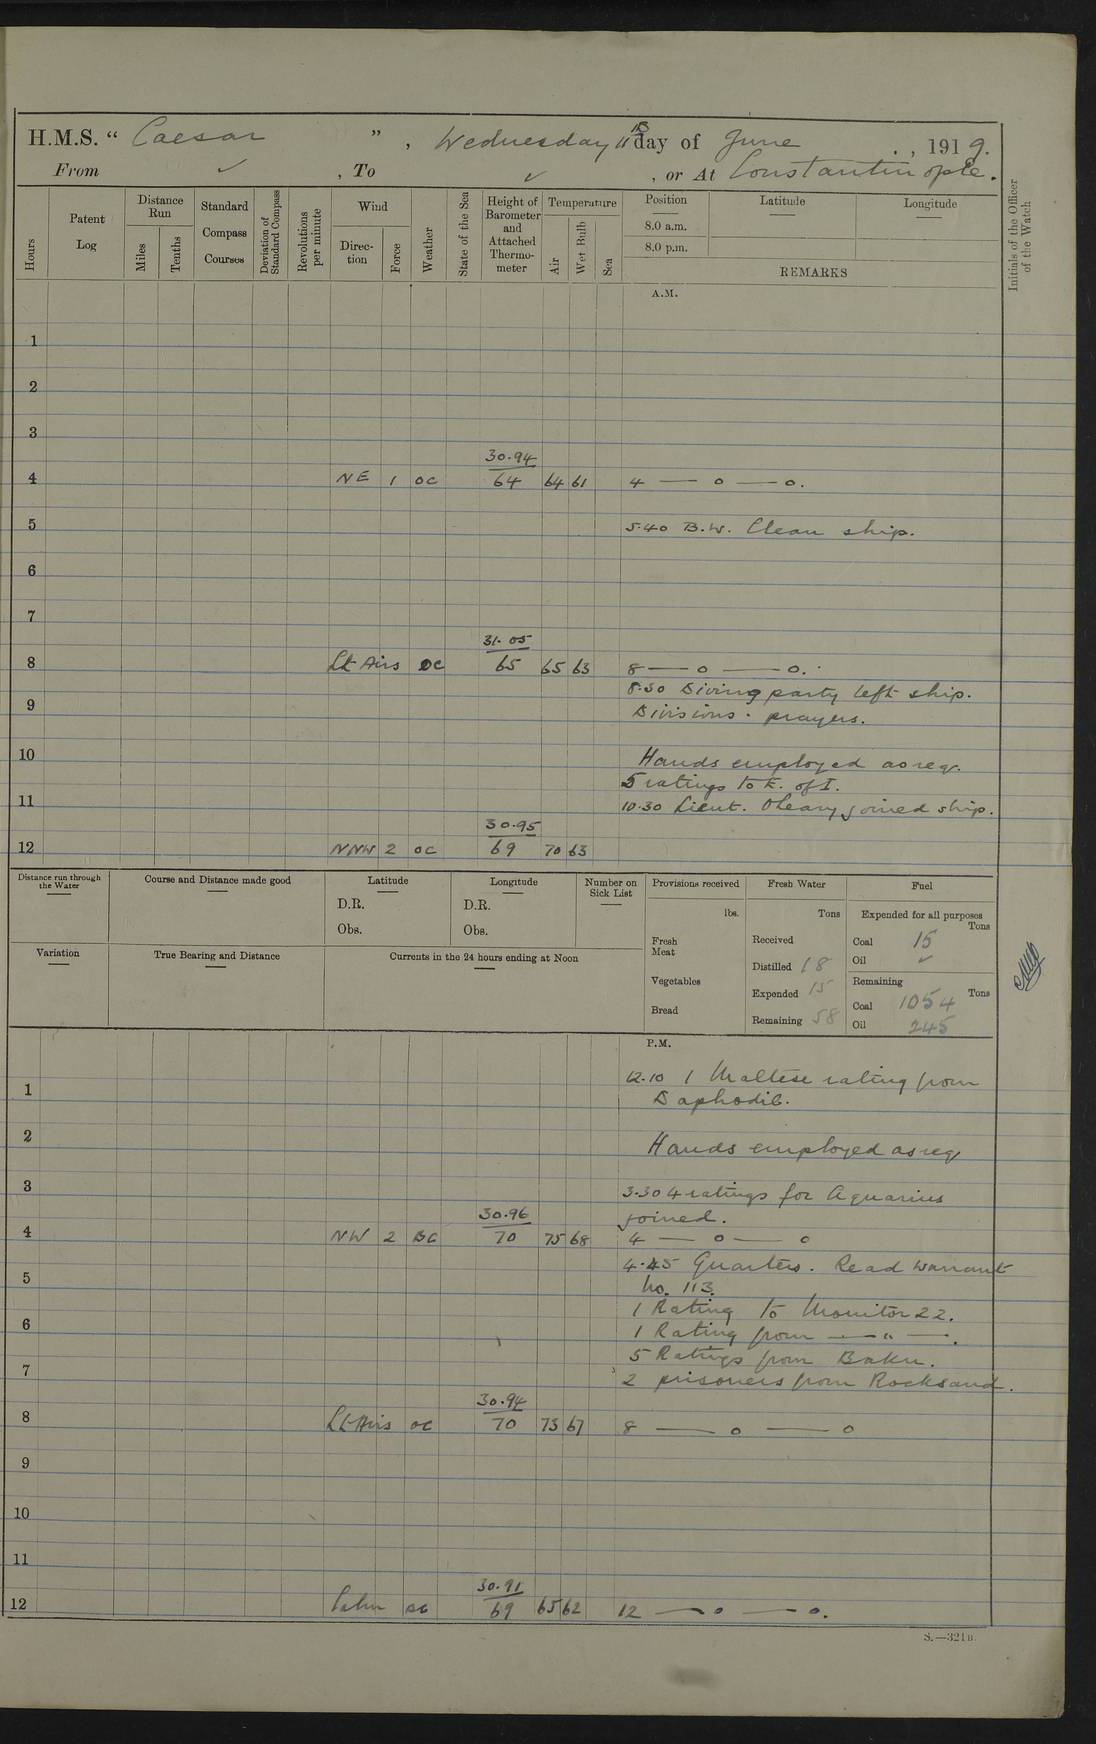 H.M.S. " Caesar ", Wednesday 11th day of June , 1919.
From ✓ , To ✓ , or At Constantinople.
Hours
Patent Log
Distance Run
Miles
Tenths
Standard Compass Courses
Deviation of Standard Compass
Revolutions per minute
Wind
Direction
Force
Weather
State of the Sea
Height of Barometer and Attached Thermometer
Temperature
Air
Wet Bulb
Sea
Position
8.0 a.m.
8.0 p.m.
Latitude
Longitude
REMARKS
Initials of the Officer of the Watch
A.M.
1
2
3
30.94
4 NE 1 oc 64 64 61 4 — o — o.
5 5.40 B.W. Clean ship.
6
7
31.05
8 Lt Airs oc 65 65 63 8 — o — o.
8.30 Diving party left ship.
9 Divisions. prayers.
10 Hands employed as req.
5 ratings to E. of I.
11 10.30 Lieut. OLeary joined ship.
30.95
12 NNW 2 oc 69 70 63
Distance run through the Water
Course and Distance made good
Latitude
D.R.
Obs.
Longitude
D.R.
Obs.
Number on Sick List
Provisions received
lbs.
Fresh Meat
Vegetables
Bread
Fresh Water
Tons
Received
Distilled 18
Expended 15
Remaining 58
Fuel
Expended for all purposes
Tons
Coal 15
Oil ✓
Remaining
Tons
Coal 1054
Oil 245
Variation
True Bearing and Distance
Currents in the 24 hours ending at Noon
P.M.
12.10 1 Maltese rating from
1 Daphodil.
2 Hands employed as req
3 3.30 4 ratings for Aquarius
30.96 joined.
4 NW 2 BC 70 75 68 4 — o — o
4.45 Quarters. Read warrant
5 No. 113.
1 Rating to Monitor 22.
6 1 Rating from — " —.
5 Ratings from Baku.
7 2 prisoners from Rocksand.
30.94
8 Lt Airs oc 70 73 67 8 — o — o
9
10
11
30.91
12 Calm BC 69 65 62 12 — o — o.
S.—321B.